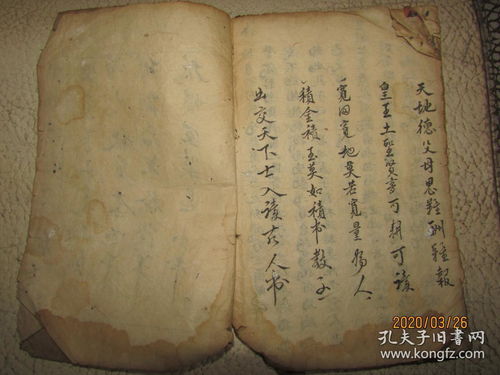 天地德父母恩难酬难報
皇王土聖賢書可耕可读
寬田寬地莫若寬量為人
積金積玉莫如積书教子
出交天下士入读古人书
2020/03/26
孔夫子旧书网
www.kongfz.com